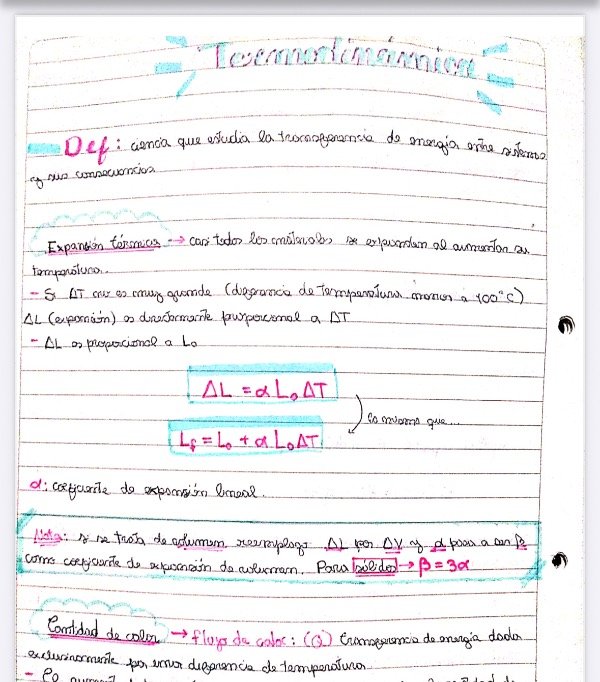 Termodinámica
Def: ciencia que estudia la transferencia de energía entre sistemas
y sus consecuencias
Expansión térmica → casi todos los materiales se expanden al aumentar su
temperatura.
- Si ΔT no es muy grande (diferencia de temperatura menor a 100°C)
ΔL (expansión) es directamente proporcional a ΔT
- ΔL es proporcional a L₀
ΔL = α L₀ ΔT
lo mismo que...
Lf = L₀ + α L₀ ΔT
α: coeficiente de expansión lineal.
Nota: si se trata de volumen reemplazo ΔL por ΔV y α pasa a ser β
como coeficiente de expansión de volumen. Para sólidos → β = 3α
Cantidad de calor → flujo de calor: (Q) transferencia de energía dada
exclusivamente por una diferencia de temperatura